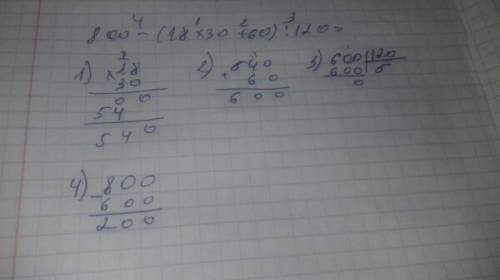 800 - (18 × 30 + 60) : 120 =
4 1 2 3
1) × 18
30
00
54
540
2) + 540
60
600
3) 600 | 120
600 | 5
0
4) - 800
600
200